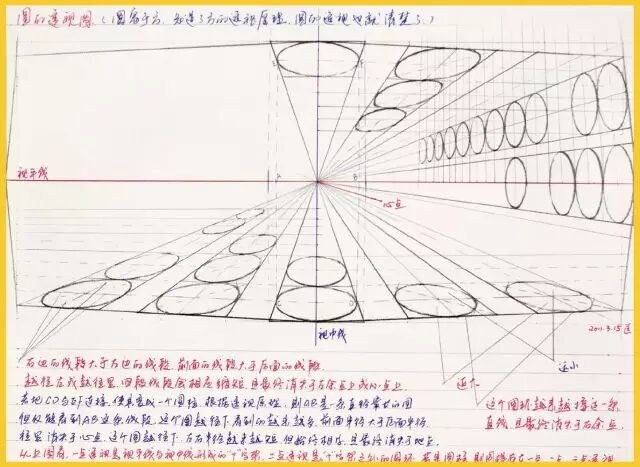 圆的透视图 (圆寓于方, 知道了方的透视原理, 圆的透视也就清楚了.)
E F
视平线
A B
心点
C D
2011.3.15
视中线
近大
远小
右边的线段大于左边的线段, 前面的线段大于后面的线段
越往左或越往里, 四段线段会相应缩短, 且最终消失于左余点上或心点上
这个圆环越来越接近一条
直线, 且最终消失于右余点.
若把CD与EF连接, 使其变成一个圆柱, 根据透视原理, 则AB是一条直径最大的圆
但仅能看到AB这条线段, 这个圆越往下, 看到的越来越多, 前面半径大于后面半径
往里消失于心点, 这个圆越往下, 左右半径越来越短, 但始终相等, 且最终消失于地点